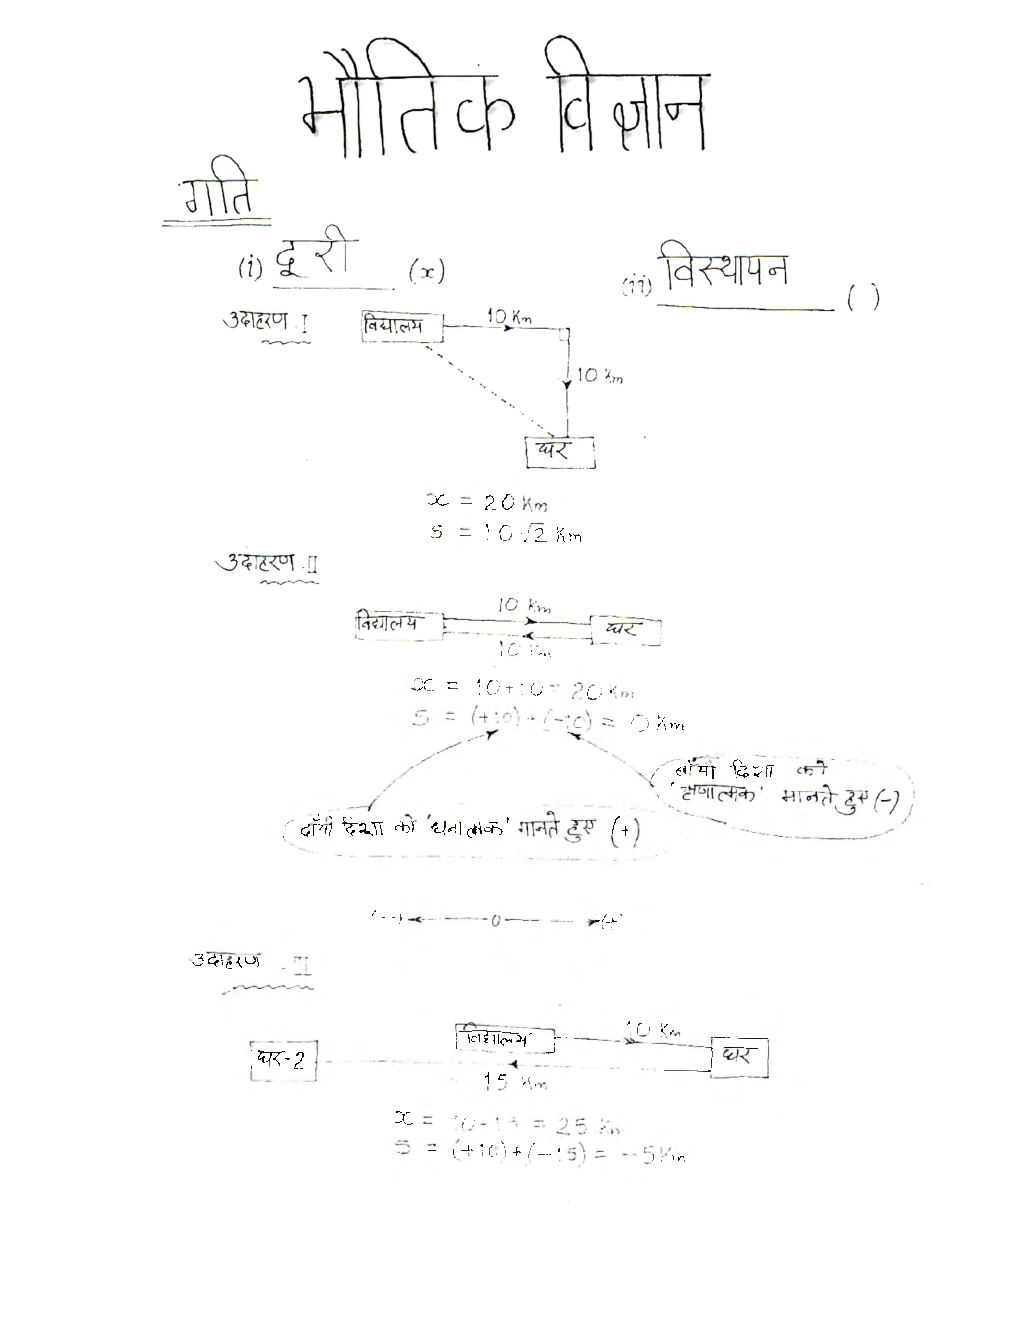 भौतिक विज्ञान
गति
(i) दूरी (x)
(ii) विस्थापन ( )
उदाहरण I
विद्यालय
10 Km
10 Km
घर
x = 20 Km
s = 10√2 Km
उदाहरण II
10 Km
विद्यालय
घर
10 Km
x = 10+10 = 20 Km
s = (+10)+(-10) = 0 Km
बाँयी दिशा को
'ऋणात्मक' मानते हुए (-)
दाँयी दिशा को 'धनात्मक' मानते हुए (+)
(-) 0 (+)
उदाहरण III
विद्यालय
10 Km
घर-2
घर
15 Km
x = 10-15 = 25 Km
s = (+10)+(-15) = -5Km